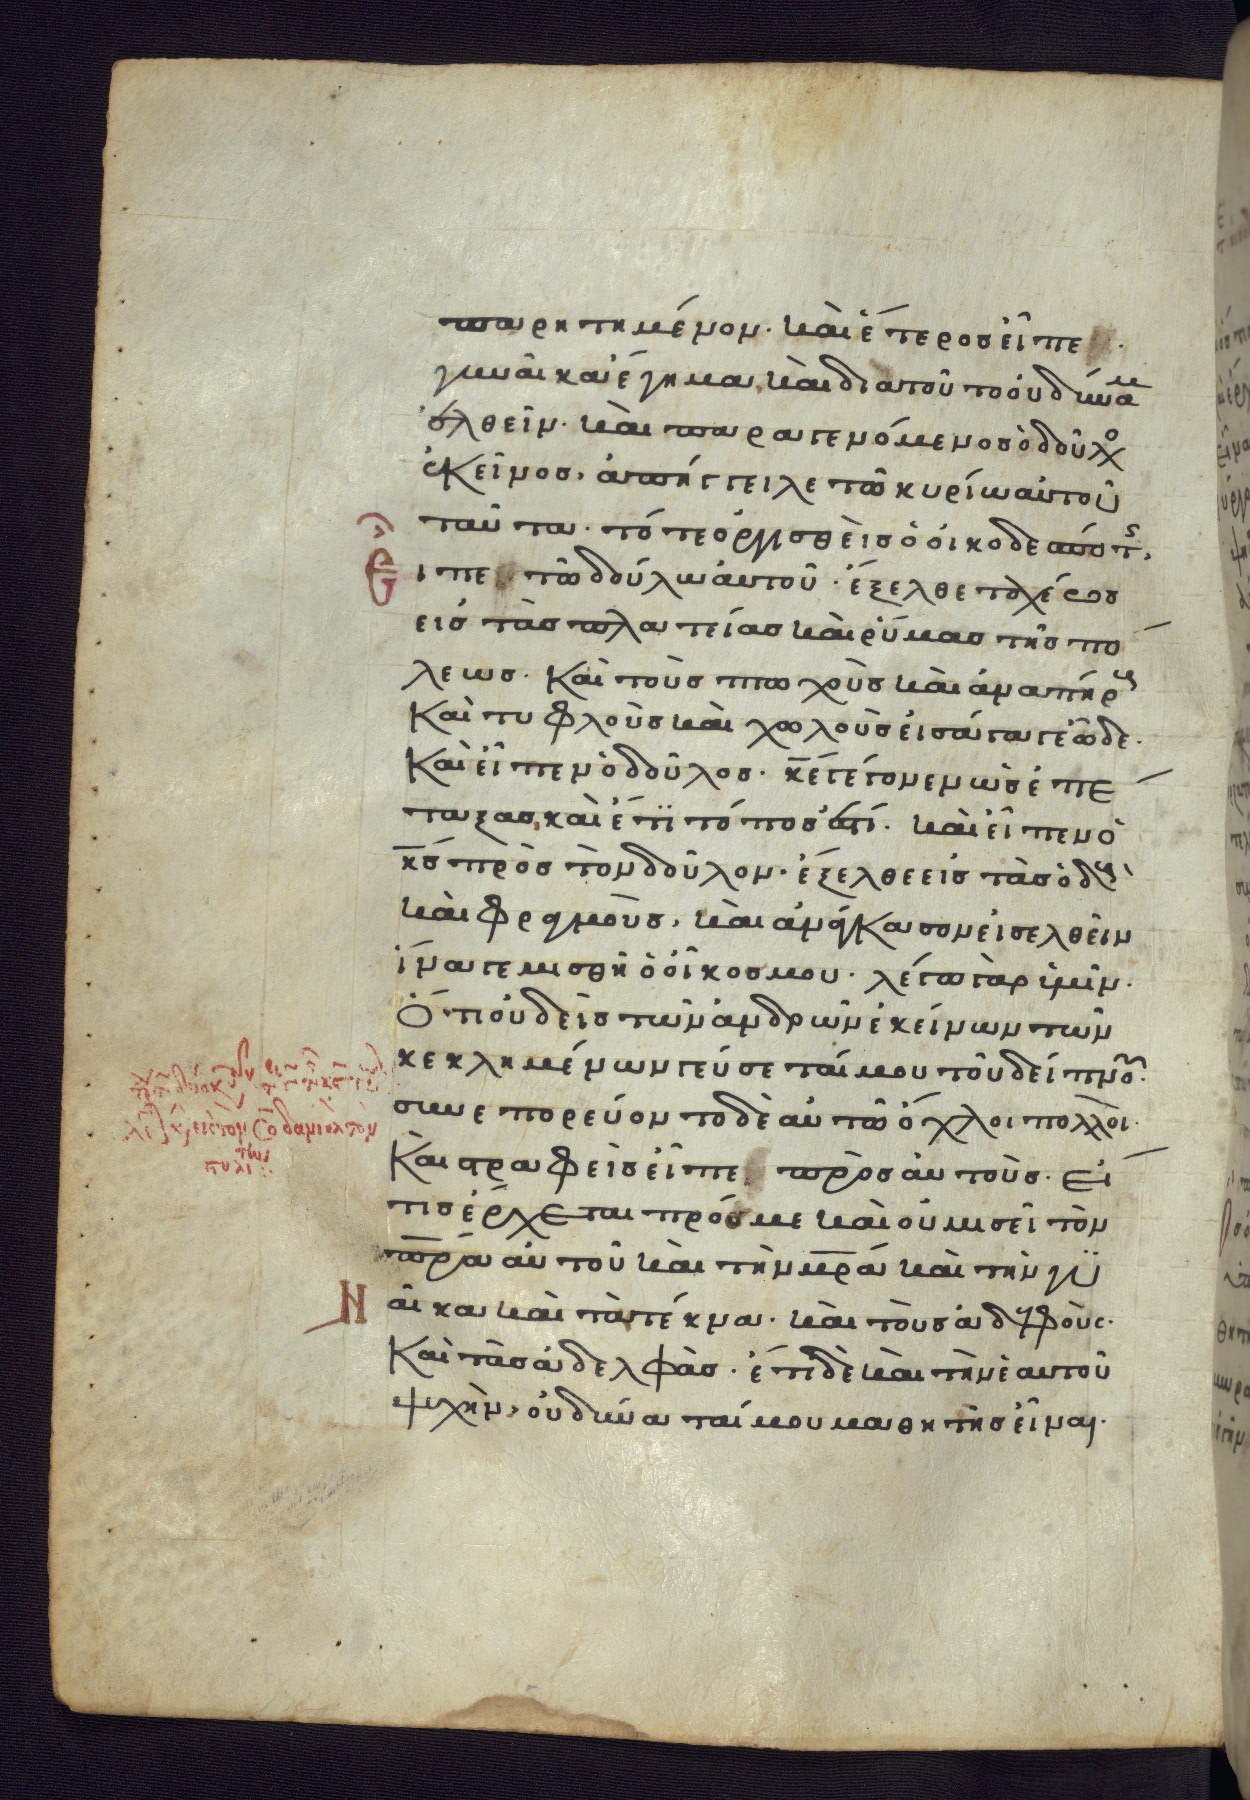 παρητημένον· καὶ ἕτερος εἶπε·
γυναῖκα ἔγημα, καὶ διατοῦτο οὐ δύναμ
ἐλθεῖν· καὶ παραγενόμενος ὁ δοῦλο
ἐκεῖνος, ἀπήγγειλε τῶ κυρίω αὐτοῦ
ταῦτα· τότε ὀργισθεὶς ὁ οἰκοδεσπότς,
εἶπε τῶ δούλω αὐτοῦ· ἔξελθε ταχέως
εἰς τὰς πλατείας καὶ ῥύμας τῆς πό
λεως· Καὶ τοὺς πτωχοὺς καὶ ἀναπήρους
Καὶ τυφλοὺς καὶ χωλοὺς εἰσάγαγε ὧδε·
Καὶ εἶπεν ὁ δοῦλος· κε γέγονεν ὡς ἐπέ
ταξας, καὶ ἔτϊ τόπος ἐστί· καὶ εἶπεν ὁ
κς πρὸς τὸν δοῦλον· ἔξελθε εἰς τὰς ὁδοὺς
καὶ φραγμοὺς, καὶ ἀνάγκασον εἰσελθεῖν
ἵνα γεμισθῆ ὁ οἶκος μου· λέγω γὰρ ὑμῖν·
Ὅτι οὐδεὶς τῶν ἀνδρῶν ἐκείνων τῶν
κεκλημένων γεύσεταί μου τοῦ δείπνο·
συνεπορεύοντο δὲ αὐτῶ ὄχλοι πολλοὶ·
Καὶ στραφεὶς εἶπε πρὸς αὐτοὺς· Εἴ
τις ἔρχεται πρός με καὶ οὐ μισεῖ τὸν
πρα αὐτοῦ καὶ τὴν μρα καὶ τὴν γυ
ναῖκα καὶ τὰ τέκνα· καὶ τοὺς ἀδελφοὺς·
Καὶ τὰς ἀδελφὰς· ἔτι δὲ καὶ τὴν ἑαυτοῦ
ψυχὴν, οὐ δύναταί μου μαθητὴς εἶναι·